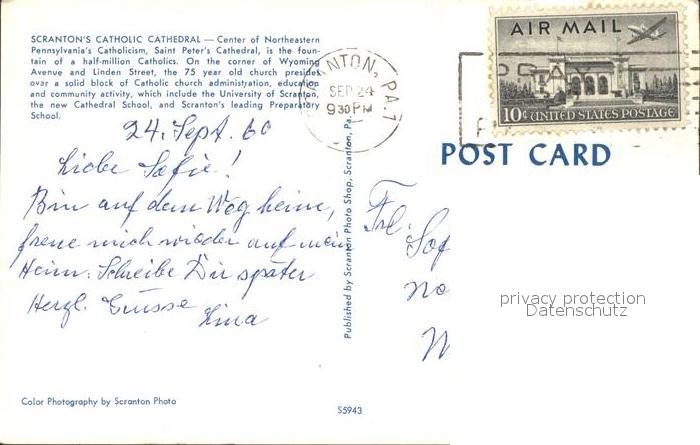 SCRANTON'S CATHOLIC CATHEDRAL — Center of Northeastern
Pennsylvania's Catholicism, Saint Peter's Cathedral, is the foun-
tain of a half-million Catholics. On the corner of Wyoming
Avenue and Linden Street, the 75 year old church presides
over a solid block of Catholic church administration, education
and community activity, which include the University of Scranton,
the new Cathedral School, and Scranton's leading Preparatory
School.
24. Sept. 60
Liebe Sofie!
Bin auf dem Weg heim,
freue mich wieder auf mein
Heim. Schreibe Dir später
Herzl. Grüsse
Lina
Color Photography by Scranton Photo
S5943
Published by Scranton Photo Shop, Scranton, Pa.
NTON, PA. 1
SEP 24
9 30 PM
AIR MAIL
10¢ UNITED STATES POSTAGE
POST CARD
Frl.
Sof
No
privacy protection
Datenschutz